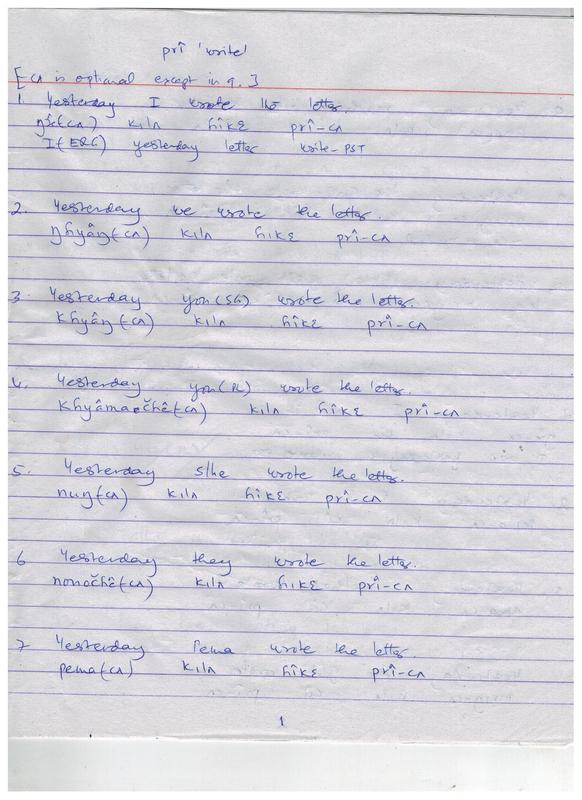 prî 'write'
[-cʌ is optional except in 9.]
1. Yesterday I wrote the letter.
kilʌ hîkɛ prî-cʌ
I(ERG) yesterday letter write-PST
2. Yesterday we wrote the letter.
ŋhyâŋ(-cʌ) kilʌ hîkɛ prî-cʌ
3. Yesterday you(SG) wrote the letter.
khyâŋ(-cʌ) kilʌ hîkɛ prî-cʌ
4. Yesterday you(PL) wrote the letter.
kilʌ hîkɛ prî-cʌ
5. Yesterday s/he wrote the letter.
nuŋ(-cʌ) kilʌ hîkɛ prî-cʌ
6 Yesterday they wrote the letter.
nonočhê(-cʌ) kilʌ hîkɛ prî-cʌ
7 Yesterday Pema wrote the letter
pema(-cʌ) kilʌ hîkɛ prî-cʌ
1